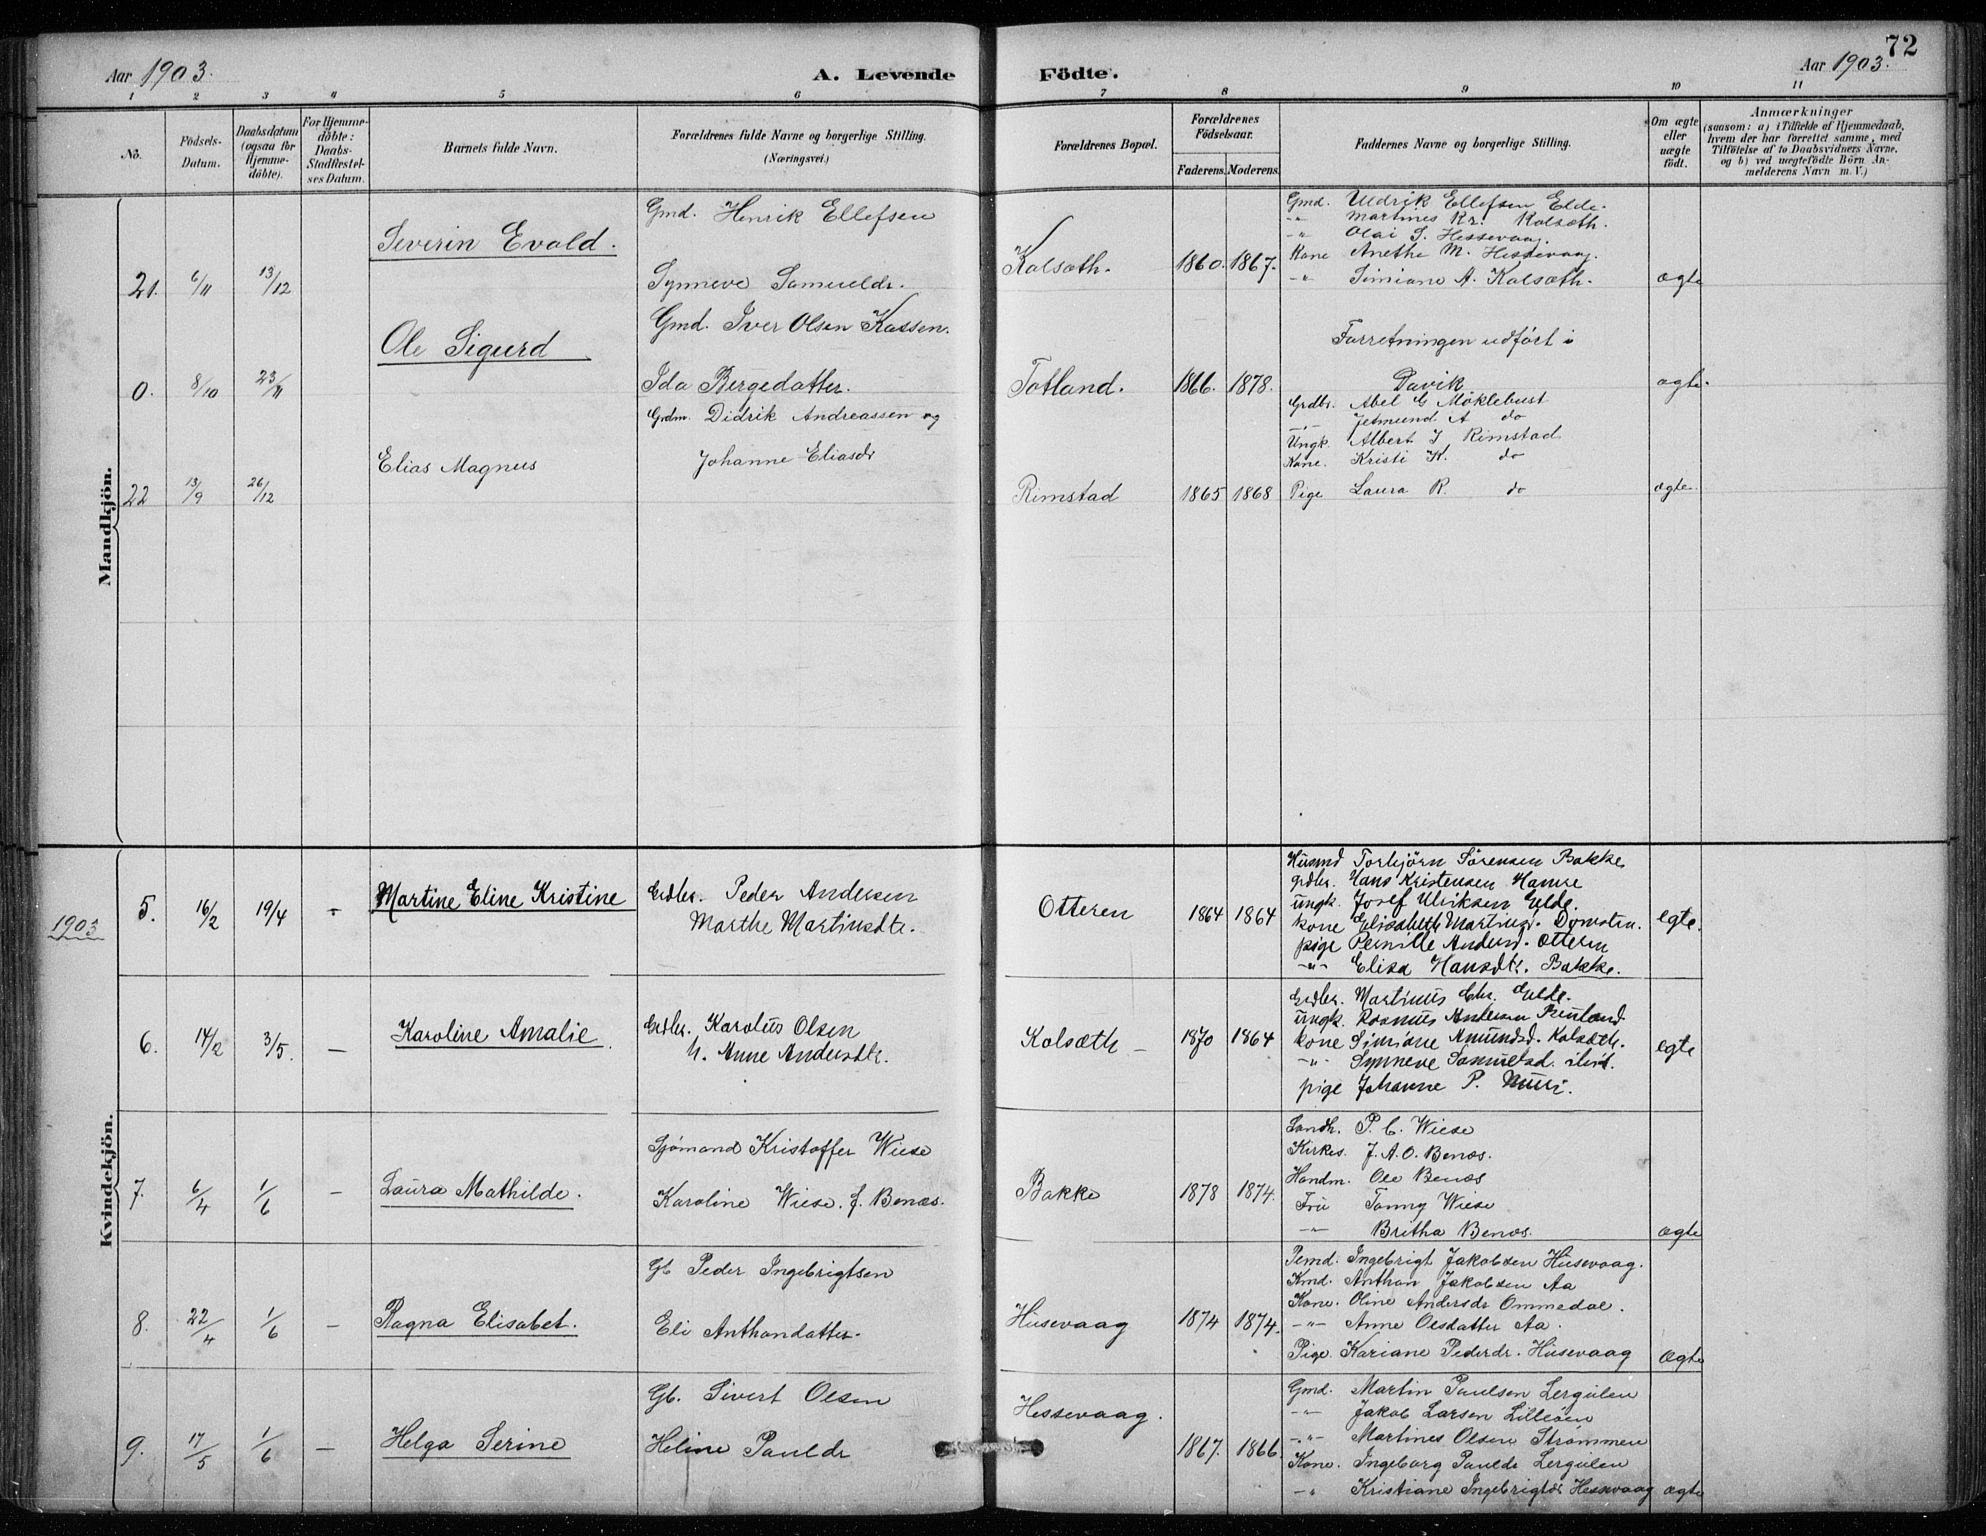 72
Aar 1903.
A. Levende
Födte.
Aar 1903.
1 2 3 4 5 6 7 8 9 10 11
No.
Födsels-Datum.
Daabsdatum (ogsaa for Hjemmedöbte).
For Hjemmedöbte: Daabs-Stadfæstelses Datum.
Barnets fulde Navn.
Forældrenes fulde Navne og borgerlige Stilling.
(Næringsvei.)
Forældrenes Bopæl.
Forældrenes Födselsaar.
Faderens. Moderens.
Faddernes Navne og borgerlige Stilling.
Om ægte eller uægte födt.
Anmærkninger
(saasom: a) i Tilfælde af Hjemmedaab,
hvem der har forrettet samme, med
Tilföielse af to Daabsvidners Navne,
og b) ved uægtefödte Börn An-
melderens Navn m. V.)
Mandkjön.
21. 6/11 13/12
Severin Evald.
Gmd. Henrik Ellefsen
Synneve Samueldr.
Kolsæth. 1860. 1867.
Gmd. Uldrik Ellefsen Elde.
-"- Martines Kr. Kolsæth.
-"- Olai S. Hessevaag.
Kone Anethe M. Hessevaag.
-"- Simiane A. Kolsæth.
ægte
0. 8/10 23/11
Ole Sigurd
Gmd. Iver Olsen Kassen.
Ida Bergedatter.
Totland. 1866. 1878.
Forretningen udført i
Davik
ægte.
22 13/9 26/12
Elias Magnus
Grdm. Didrik Andreassen og
Johanne Eliasdr
Rimstad 1865 1868
Grdbr. Abel G Möklebust
-"- Jetmund A do
Ungk. Albert J Rimstad
Kone. Kristi K. do
Pige Laura R. do
ægte.
1903
Kvindekjön.
5. 16/2 19/4 -
Martine Eline Kristine
Grdbr. Peder Andersen
Marthe Martinsdtr.
Otteren 1864 1864
Husmd Torbjörn Sörensen Bakke
grdbr. Hans Kristensen Hamre
ungk. Josef Ulriksen Elde.
kone Elisabeth Martinsd. Domsten.
pige Pernille Andersd. Otteren
-"- Elisa Hansdtr. Bakke.
egte.
6. 14/2 3/5. -
Karoline Amalie.
Grdbr. Karolus Olsen
h. Anne Andersdtr.
Kolsæth - 1870 1864
Grdbr. Martinus Chr. Elde.
ungk. Rasmus Andersen
kone Simiane Amundsd. Kolsæth.
-"- Synneve Samuelsd. ibid.
pige Johanne P. Muri.
egte
7. 6/4 1/6 -
Laura Mathilde.
Sjömand Kristoffer Wiese
Karoline Wiese. f. Benæs.
Bakke 1878 1874.
Landh. P. C. Wiese
Kirkes. J. A. O. Benæs.
Handm. Ole Benæs
Frü Wiese
-"- Britha Benæs.
ægte
8. 22/4 1/6 -
Ragna Elisabet.
Gb Peder Ingebrigtsen
Eli Anthondatter.
Husevaag 1874 1874.
Ingebrigt Jakobsen Husevaag.
Kmd. Anthon Jakobsen Aa
Kone. Oline Andersdr Ommedal.
-"- Anne Olsdatter Aa.
Pige. Kariane Pedersdr. Husevaag
Ægte
9. 17/5 1/6 -
Helga Serine
Gb. Sivert Olsen
Heline Pauldr
Hessevaag. 1867. 1866.
Gmd. Martin Paulsen Lergulen
-"- Jakob Larsen Lilleöen
-"- Martines Olsen Strömmen
Kone. Ingeborg Pauldr Lergulen
-"- Kristiane Ingebrigtdr Hessevaag
ægte